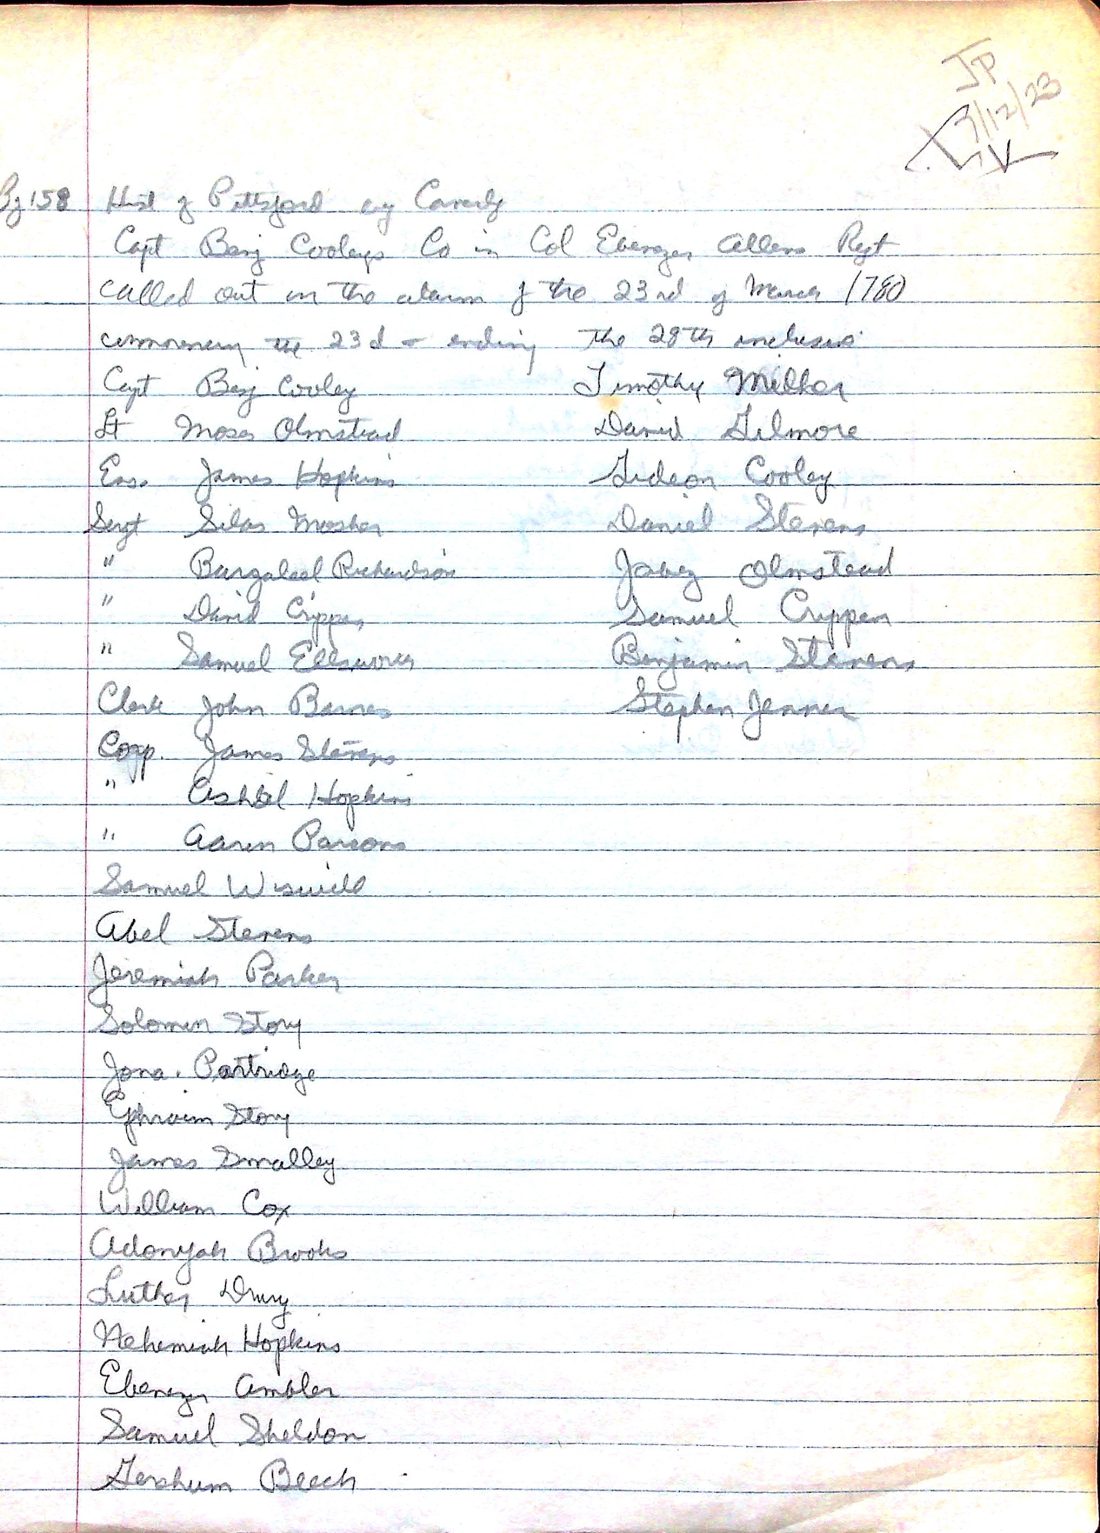 JP
3/12/23
Pg 158 Hist of Pittsford by Caverly
Capt Benj Cooleys Co in Col Ebenezer Allens Regt
called out in the alarm of the 23rd of March 1780
commencing the 23d & ending the 28th inclusive
Capt Benj Cooley
Lt Moses Olmstead
Ens. James Hopkins
Sergt Silas Mosher
" Barzaleel Richardson
" David Crippen
" Samuel Ellsworth
Clerk John Barnes
Corp. James Stevens
" Ashbel Hopkins
" Aaron Parsons
Samuel Wiswell
Abel Stevens
Jeremiah Parker
Solomon Story
Jona. Partridge
Ephraim Story
James Smalley
William Cox
Adonyah Brooks
Luther Drury
Nehemiah Hopkins
Ebenezer Ambler
Samuel Sheldon
Gershum Beech
Timothy Miller
David Gilmore
Gideon Cooley
Daniel Stevens
Jabez Olmstead
Samuel Crippen
Benjamin Stevens
Stephen Jenner